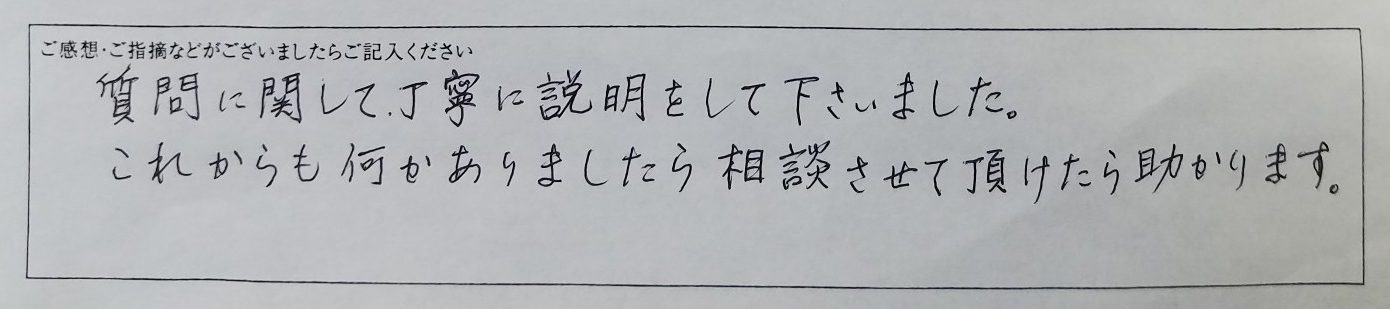 ご感想・ご指摘などがございましたらご記入ください
質問に関して、丁寧に説明をして下さいました。
これからも何かありましたら相談させて頂けたら助かります。